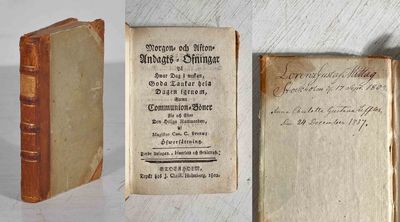 Morgon- och Afton-
Andagts-Öfningar
På
Hwar Dag i weckan,
Goda Tankar hela
Dagen igenom,
Samt
Communion-Böner
För och Efter
Den Heliga Nattwarden,
af
Magister Chr. C. Sturms
Öfwersättning.
STOCKHOLM,
Tryckt hos J. Christ. Holmberg, 1802.
Lorens Gustaf Mittag
Stockholm d. 17 Sept. 180
Anna Charlotta Gustava
den 24 December 1837.